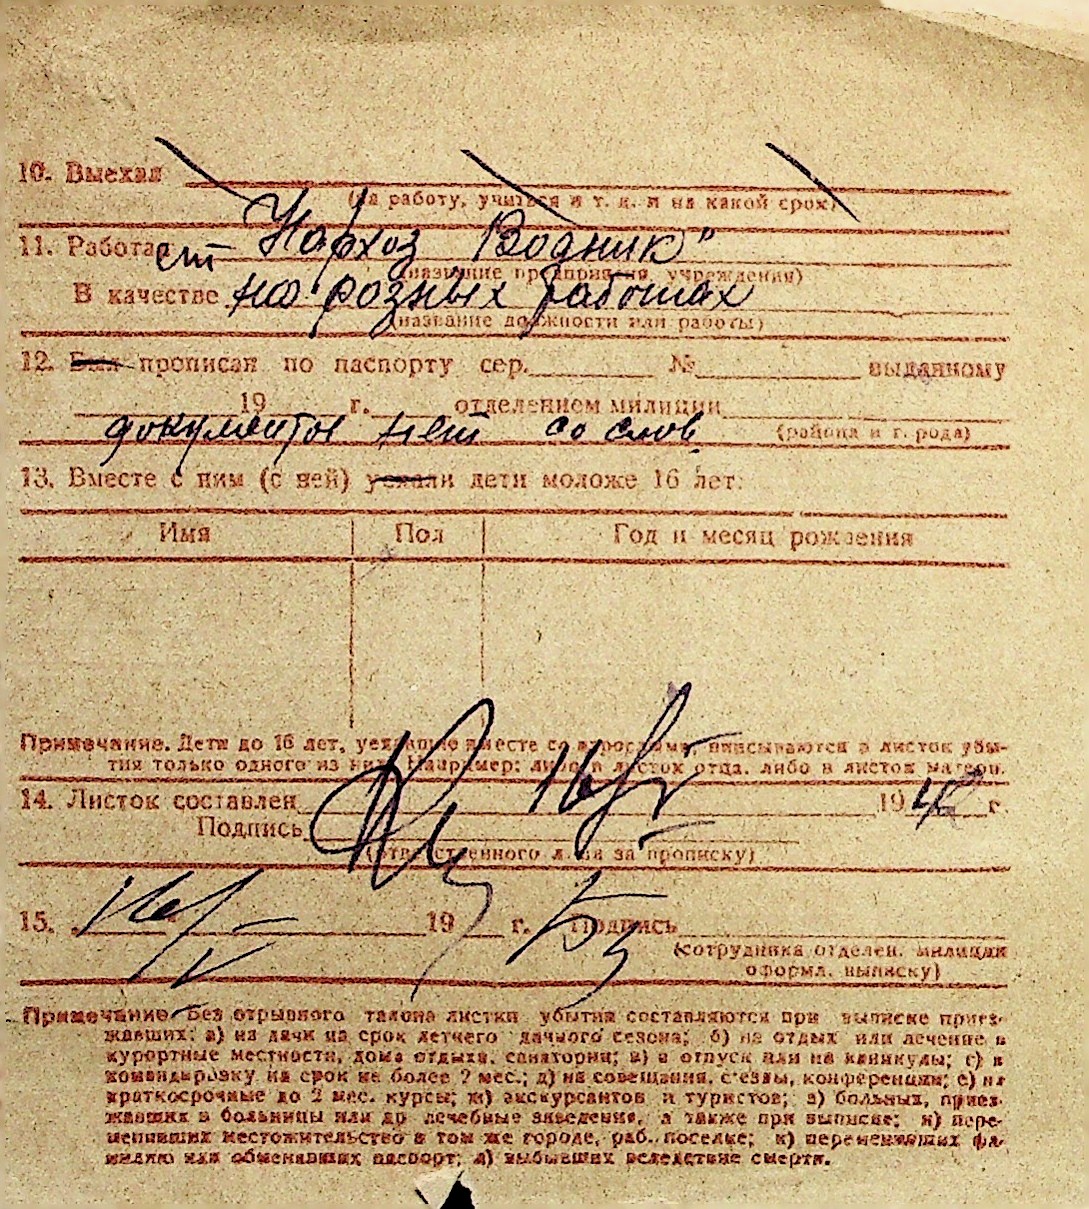 10. Выехал
(на работу, учиться и т. д. и на какой срок)
11. Работал ст Нархоз Водник"
(название предприятия, учреждения)
В качестве на розных работах
(название должности или работы)
12. Был прописан по паспорту сер. № выданному
19 г. отделением милиции
документов нет со слов
(района и города)
13. Вместе с ним (с ней) уехали дети моложе 16 лет:
Имя Пол Год и месяц рождения
Примечание. Дети до 16 лет, уехавшие вместе со взрослыми, вписываются в листок убы-
тия только одного из них. Например: либо в листок отца, либо в листок матери.
14. Листок составлен 16/V 1948 г.
Подпись
(ответственного лица за прописку)
15. 16/V 19 г. Подпись
(сотрудника отделен. милиции
оформл. выписку)
Примечание. Без отрывного талона листки убытия составляются при выписке приез-
жавших: а) на дачи на срок летнего дачного сезона; б) на отдых или лечение в
курортные местности, дома отдыха, санатории; в) в отпуск или на каникулы; г) в
командировку на срок не более 2 мес.; д) на совещания, с'езды, конференции; е) на
краткосрочные до 2 мес. курсы; ж) экскурсантов и туристов; з) больных, приез-
жавших в больницы или др. лечебные заведения, а также при выписке; и) пере-
менивших местожительство в том же городе, раб. поселке; к) переменивших фа-
милию или обменявших паспорт; л) выбывших вследствие смерти.